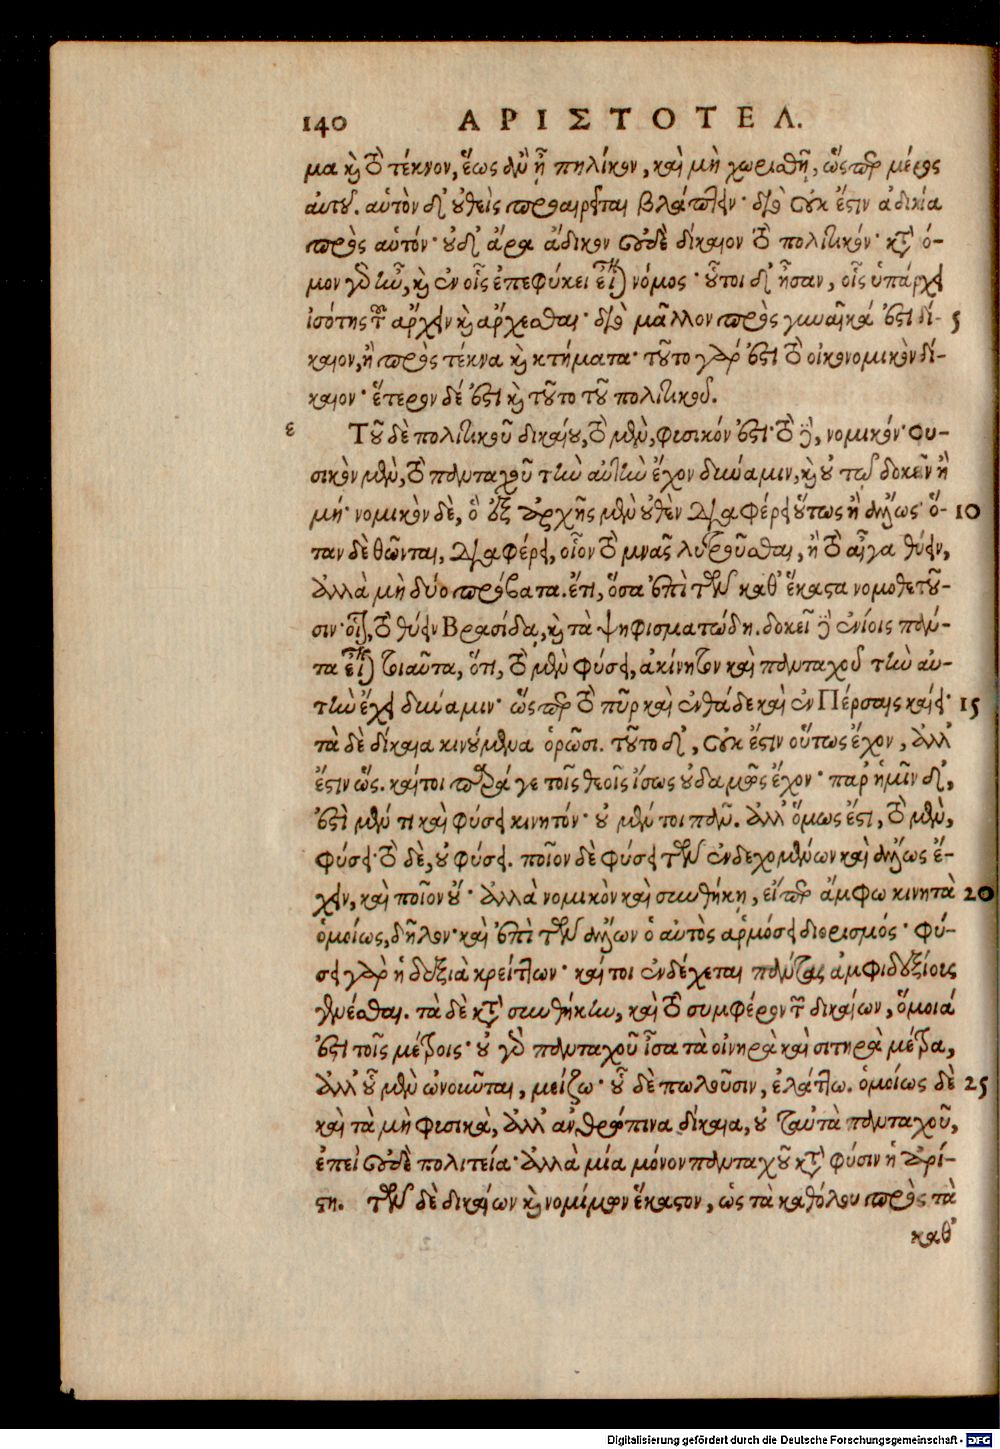 140 ΑΡΙΣΤΟΤΕΛ.
μα καὶ τὸ τέκνον, ἕως ἂν ᾖ πηλίκον, καὶ μὴ χωρισθῇ, ὥσπερ μέρος
αὐτοῦ. αὑτὸν δ' οὐθεὶς προαιρεῖται βλάπτειν· διὸ οὐκ ἔστιν ἀδικία
πρὸς αὑτόν· οὐδ' ἄρα ἄδικον οὐδὲ δίκαιον τὸ πολιτικόν· κατὰ νό-
μον γὰρ ἦν, καὶ ἐν οἷς ἐπεφύκει εἶναι νόμος· οὗτοι δ' ἦσαν, οἷς ὑπάρχει
ἰσότης τοῦ ἄρχειν καὶ ἄρχεσθαι· διὸ μᾶλλον πρὸς γυναῖκά ἐστι δί- 5
καιον, ἢ πρὸς τέκνα καὶ κτήματα· τοῦτο γάρ ἐστι τὸ οἰκονομικὸν δί-
καιον· ἕτερον δέ ἐστι καὶ τοῦτο τοῦ πολιτικοῦ.
ε Τοῦ δὲ πολιτικοῦ δικαίου, τὸ μὲν, φυσικόν ἐστι· τὸ δὲ, νομικόν· φυ-
σικὸν μὲν, τὸ πανταχοῦ τὴν αὐτὴν ἔχον δύναμιν, καὶ οὐ τῷ δοκεῖν ἢ
μή· νομικὸν δὲ, ὃ ἐξ ἀρχῆς μὲν οὐθὲν διαφέρει οὕτως ἢ ἄλλως· ὅ- 10
ταν δὲ θῶνται, διαφέρει, οἷον τὸ μνᾶς λυτροῦσθαι, ἢ τὸ αἶγα θύειν,
ἀλλὰ μὴ δύο πρόβατα. ἔτι, ὅσα ἐπὶ τῶν καθ' ἕκαστα νομοθετοῦ-
σιν· οἷον, τὸ θύειν Βρασίδᾳ, καὶ τὰ ψηφισματώδη. δοκεῖ δὲ ἐνίοις πάν-
τα εἶναι τοιαῦτα, ὅτι, τὸ μὲν φύσει, ἀκίνητον καὶ πανταχοῦ τὴν αὐ-
τὴν ἔχει δύναμιν· ὥσπερ τὸ πῦρ καὶ ἐνθάδε καὶ ἐν Πέρσαις καίει· 15
τὰ δὲ δίκαια κινούμενα ὁρῶσι. τοῦτο δ', οὐκ ἔστιν οὕτως ἔχον, ἀλλ'
ἔστιν ὥς. καίτοι παρά γε τοῖς θεοῖς ἴσως οὐδαμῶς ἔχον· παρ' ἡμῖν δ',
ἐστὶ μέν τι καὶ φύσει κινητόν· οὐ μέν τοι πᾶν. ἀλλ' ὅμως ἐστι, τὸ μὲν,
φύσει· τὸ δὲ, οὐ φύσει. ποῖον δὲ φύσει τῶν ἐνδεχομένων καὶ ἄλλως ἔ-
χειν, καὶ ποῖον οὔ· ἀλλὰ νομικὸν καὶ συνθήκῃ, εἴπερ ἄμφω κινητὰ 20
ὁμοίως, δῆλον· καὶ ἐπὶ τῶν ἄλλων ὁ αὐτὸς ἁρμόσει διορισμός· φύ-
σει γὰρ ἡ δεξιὰ κρείττων· καίτοι ἐνδέχεται πάντας ἀμφιδεξίους
γενέσθαι. τὰ δὲ κατὰ συνθήκην, καὶ τὸ συμφέρον τῶν δικαίων, ὅμοιά
ἐστι τοῖς μέτροις· οὐ γὰρ πανταχοῦ ἴσα τὰ οἰνηρὰ καὶ σιτηρὰ μέτρα,
ἀλλ' οὗ μὲν ὠνοῦνται, μείζω· οὗ δὲ πωλοῦσιν, ἐλάττω. ὁμοίως δὲ 25
καὶ τὰ μὴ φυσικὰ, ἀλλ' ἀνθρώπινα δίκαια, οὐ ταὐτὰ πανταχοῦ,
ἐπεὶ οὐδὲ πολιτεία· ἀλλὰ μία μόνον πανταχοῦ κατὰ φύσιν ἡ ἀρί-
στη. τῶν δὲ δικαίων καὶ νομίμων ἕκαστον, ὡς τὰ καθόλου πρὸς τὰ
καθ'
Digitalisierung gefördert durch die Deutsche Forschungsgemeinschaft - DFG